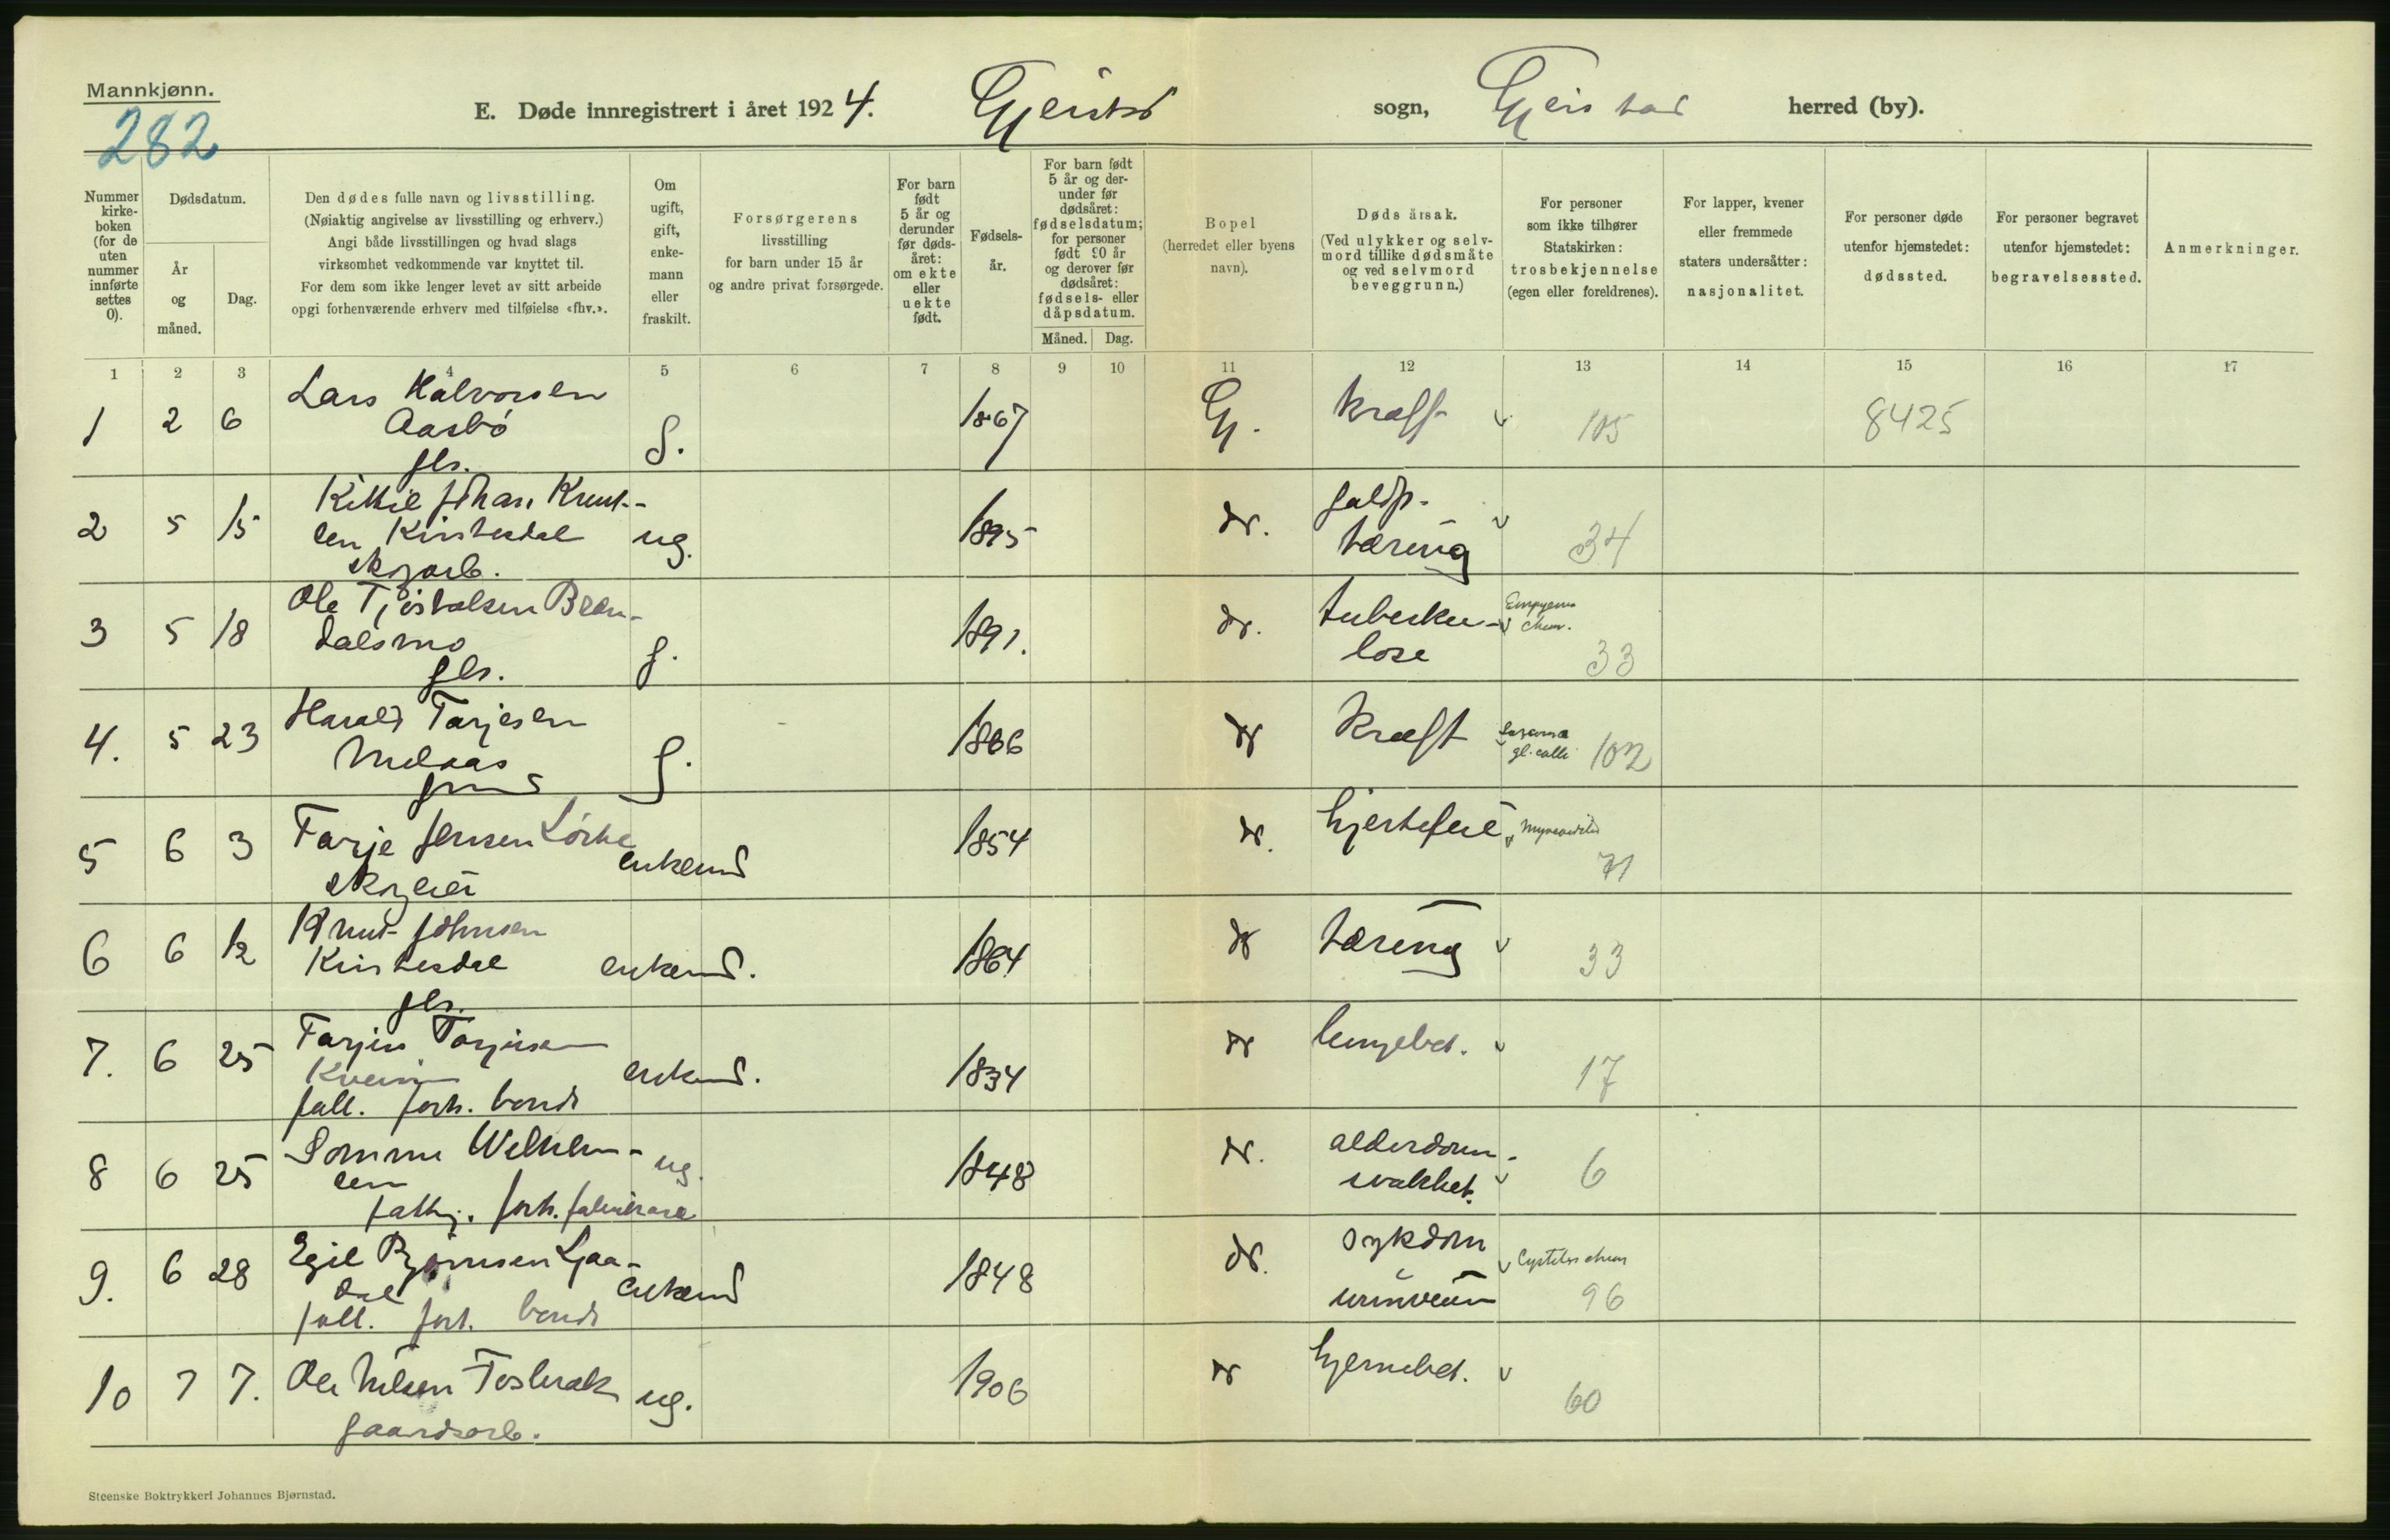 Mannkjønn.
282
E. Døde innregistrert i året 1924. Gjerstad sogn, Gjerstad herred (by).
Nummer kirkeboken (for de uten nummer innførte settes 0).
Dødsdatum.
År og måned.
Dag.
Den dødes fulle navn og livsstilling.
(Nøiaktig angivelse av livsstilling og erhverv.)
Angi både livsstillingen og hvad slags
virksomhet vedkommende var knyttet til.
For dem som ikke lenger levet av sitt arbeide
opgi forhenværende erhverv med tilføielse «fhv.».
Om ugift, gift, enkemann eller fraskilt.
Forsørgerens
livsstilling
for barn under 15 år
og andre privat forsørgede.
For barn født 5 år og derunder før dødsåret: om ekte eller uekte født.
Fødselsår.
For barn født 5 år og derunder før dødsåret: fødselsdatum; for personer født 90 år og derover før dødsåret: fødsels- eller dåpsdatum.
Måned. Dag.
Bopel
(herredet eller byens
navn).
Døds årsak.
(Ved ulykker og selvmord tillike dødsmåte og ved selvmord beveggrunn.)
For personer
som ikke tilhører
Statskirken:
trosbekjennelse
(egen eller foreldrenes).
For lapper, kvener
eller fremmede
staters undersåtter:
nasjonalitet.
For personer døde
utenfor hjemstedet:
dødssted.
For personer begravet
utenfor hjemstedet:
begravelsessted.
Anmerkninger.
1 2 3 4 5 6 7 8 9 10 11 12 13 14 15 16 17
1 2 6 Lars Halvorsen
Aasbø
g. 1867 Gj. kræft 105 8425
2 5 15 Kittil Johan Knut-
sen Kirstesdal
skogarb.
ug. 1895 do. galop.
tæring 34
3 5 18 Ole Tjøstolsen Bran-
dalsmo
g. 1891. do. tuberku-
lose Empyema
chron. 33
4. 5 23 Harald Tarjesen
Melaas
g. 1866 do kræft
gl. colli 102
5 6 3 Tarje Jensen Løite
skogeier
enkemd 1854 do. hjertefeil 71
6 6 12 Knut Johnsen
Kirstesdal
enkemd. 1864 do tæring 33
7. 6 25 Tarjei Tarjeisen
fatt. forh. bonde
enkemd. 1834 do lungebet. 17
8 6 25 Wilhelm-
sen
ug. 1848 do. alderdom-
svakhet. 6
9. 6 28 Egil Bjørnsen Gaa-
dal
fatt. forh. bonde
enkemd 1848 do. sykdom
urinveien 96
10 7 7. Ole Nilsen Fosbræk
gaardsarb.
ug. 1906 do hjernebet. 60
Steenske Boktrykkeri Johannes Bjørnstad.